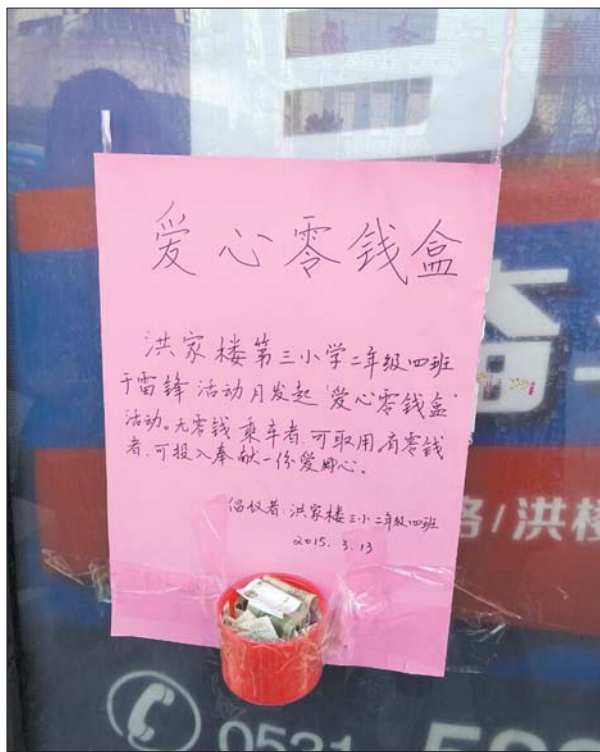 爱心零钱盒
洪家楼第三小学二年级四班
于雷锋活动月发起"爱心零钱盒"
活动。无零钱乘车者,可取用,有零钱
者,可投入奉献一份爱心。
倡议者:洪家楼三小二年级四班
2015.3.13
路/洪楼
0531